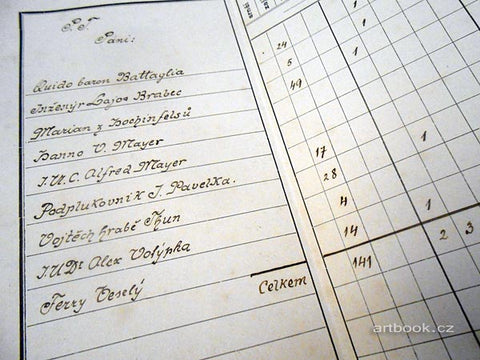 P. T.
Páni:
Quido baron Battaglia
Inženýr Lajos Brabec
Marian z Hochinfelsů
Hanno V. Mayer
J.U.C. Alfred Mayer
Podplukovník J. Pavelka.
Vojtěch hrabě Thun
J.U.Dr Alex Volýpka
Ferry Veselý
Celkem
24 1
6 1
49
17 1
28
4
14 1
141 2 3
artbook.cz